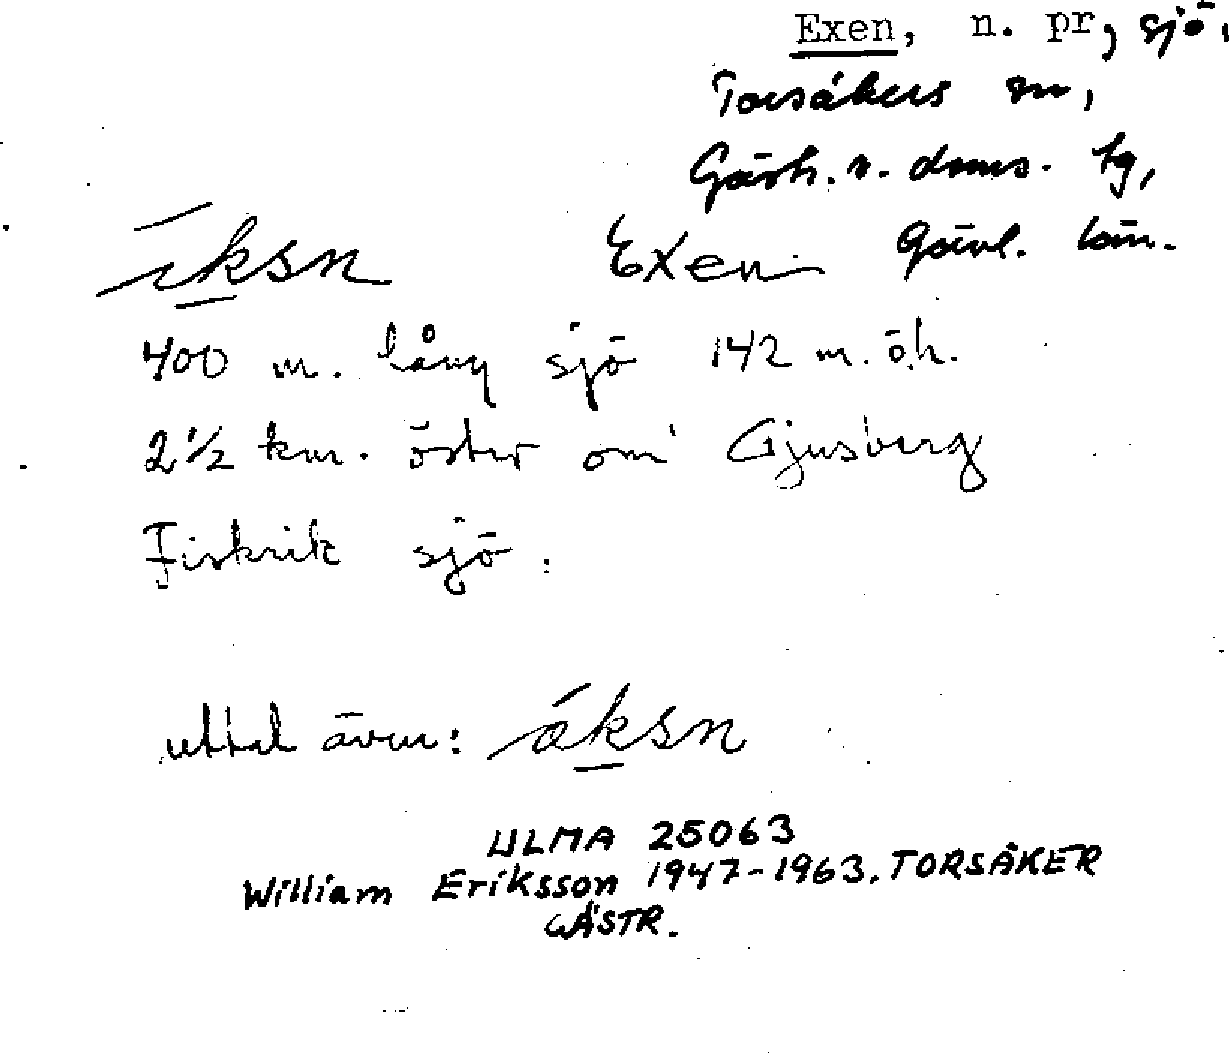 Exen, n. pr, sjö,
Torsåkers sn,
Gästr. ö. doms. tg,
Gävl. län.
íksn Exen
400 m. lång sjö 142 m. ö.h.
2 1/2 km. öster om Gjusberg
Fiskrik sjö.
uttal även: åksn
ULMA 25063
William Eriksson 1947-1963. TORSÅKER
GÄSTR.